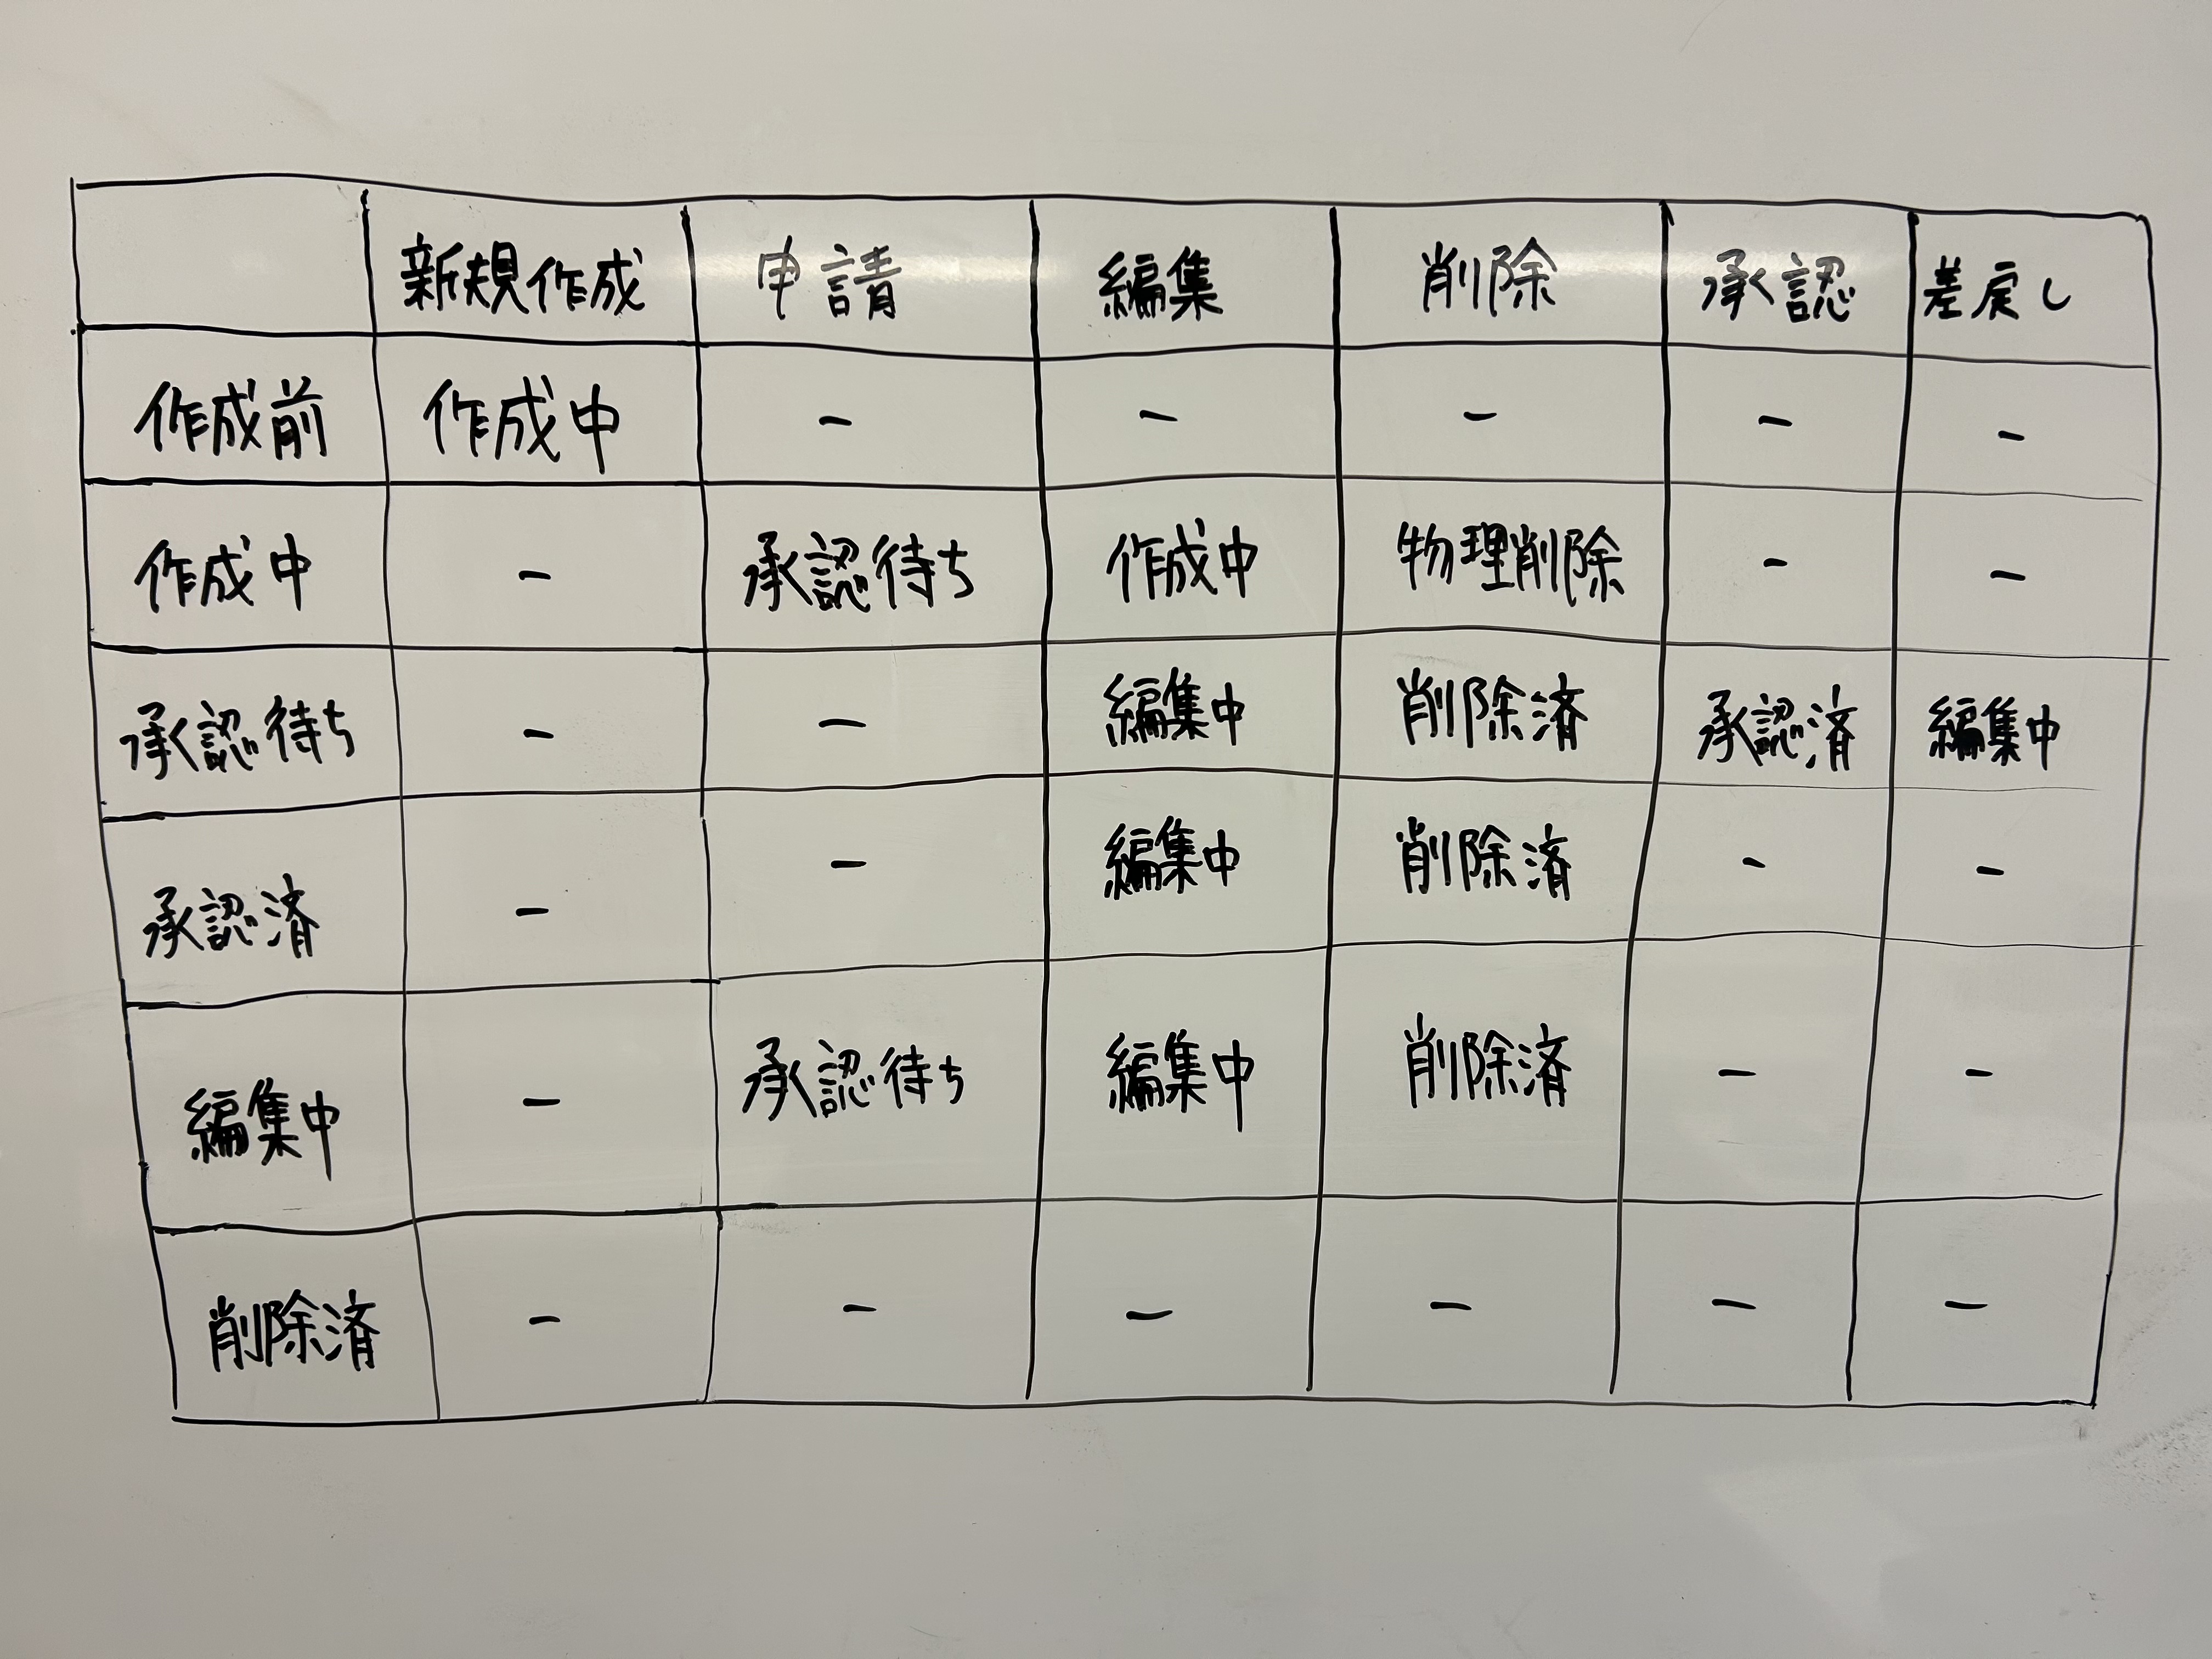 新規作成 申請 編集 削除 承認 差戻し
作成前 作成中 - - - - -
作成中 - 承認待ち 作成中 物理削除 - -
承認待ち - - 編集中 削除済 承認済 編集中
承認済 - - 編集中 削除済 - -
編集中 - 承認待ち 編集中 削除済 - -
削除済 - - - - - -